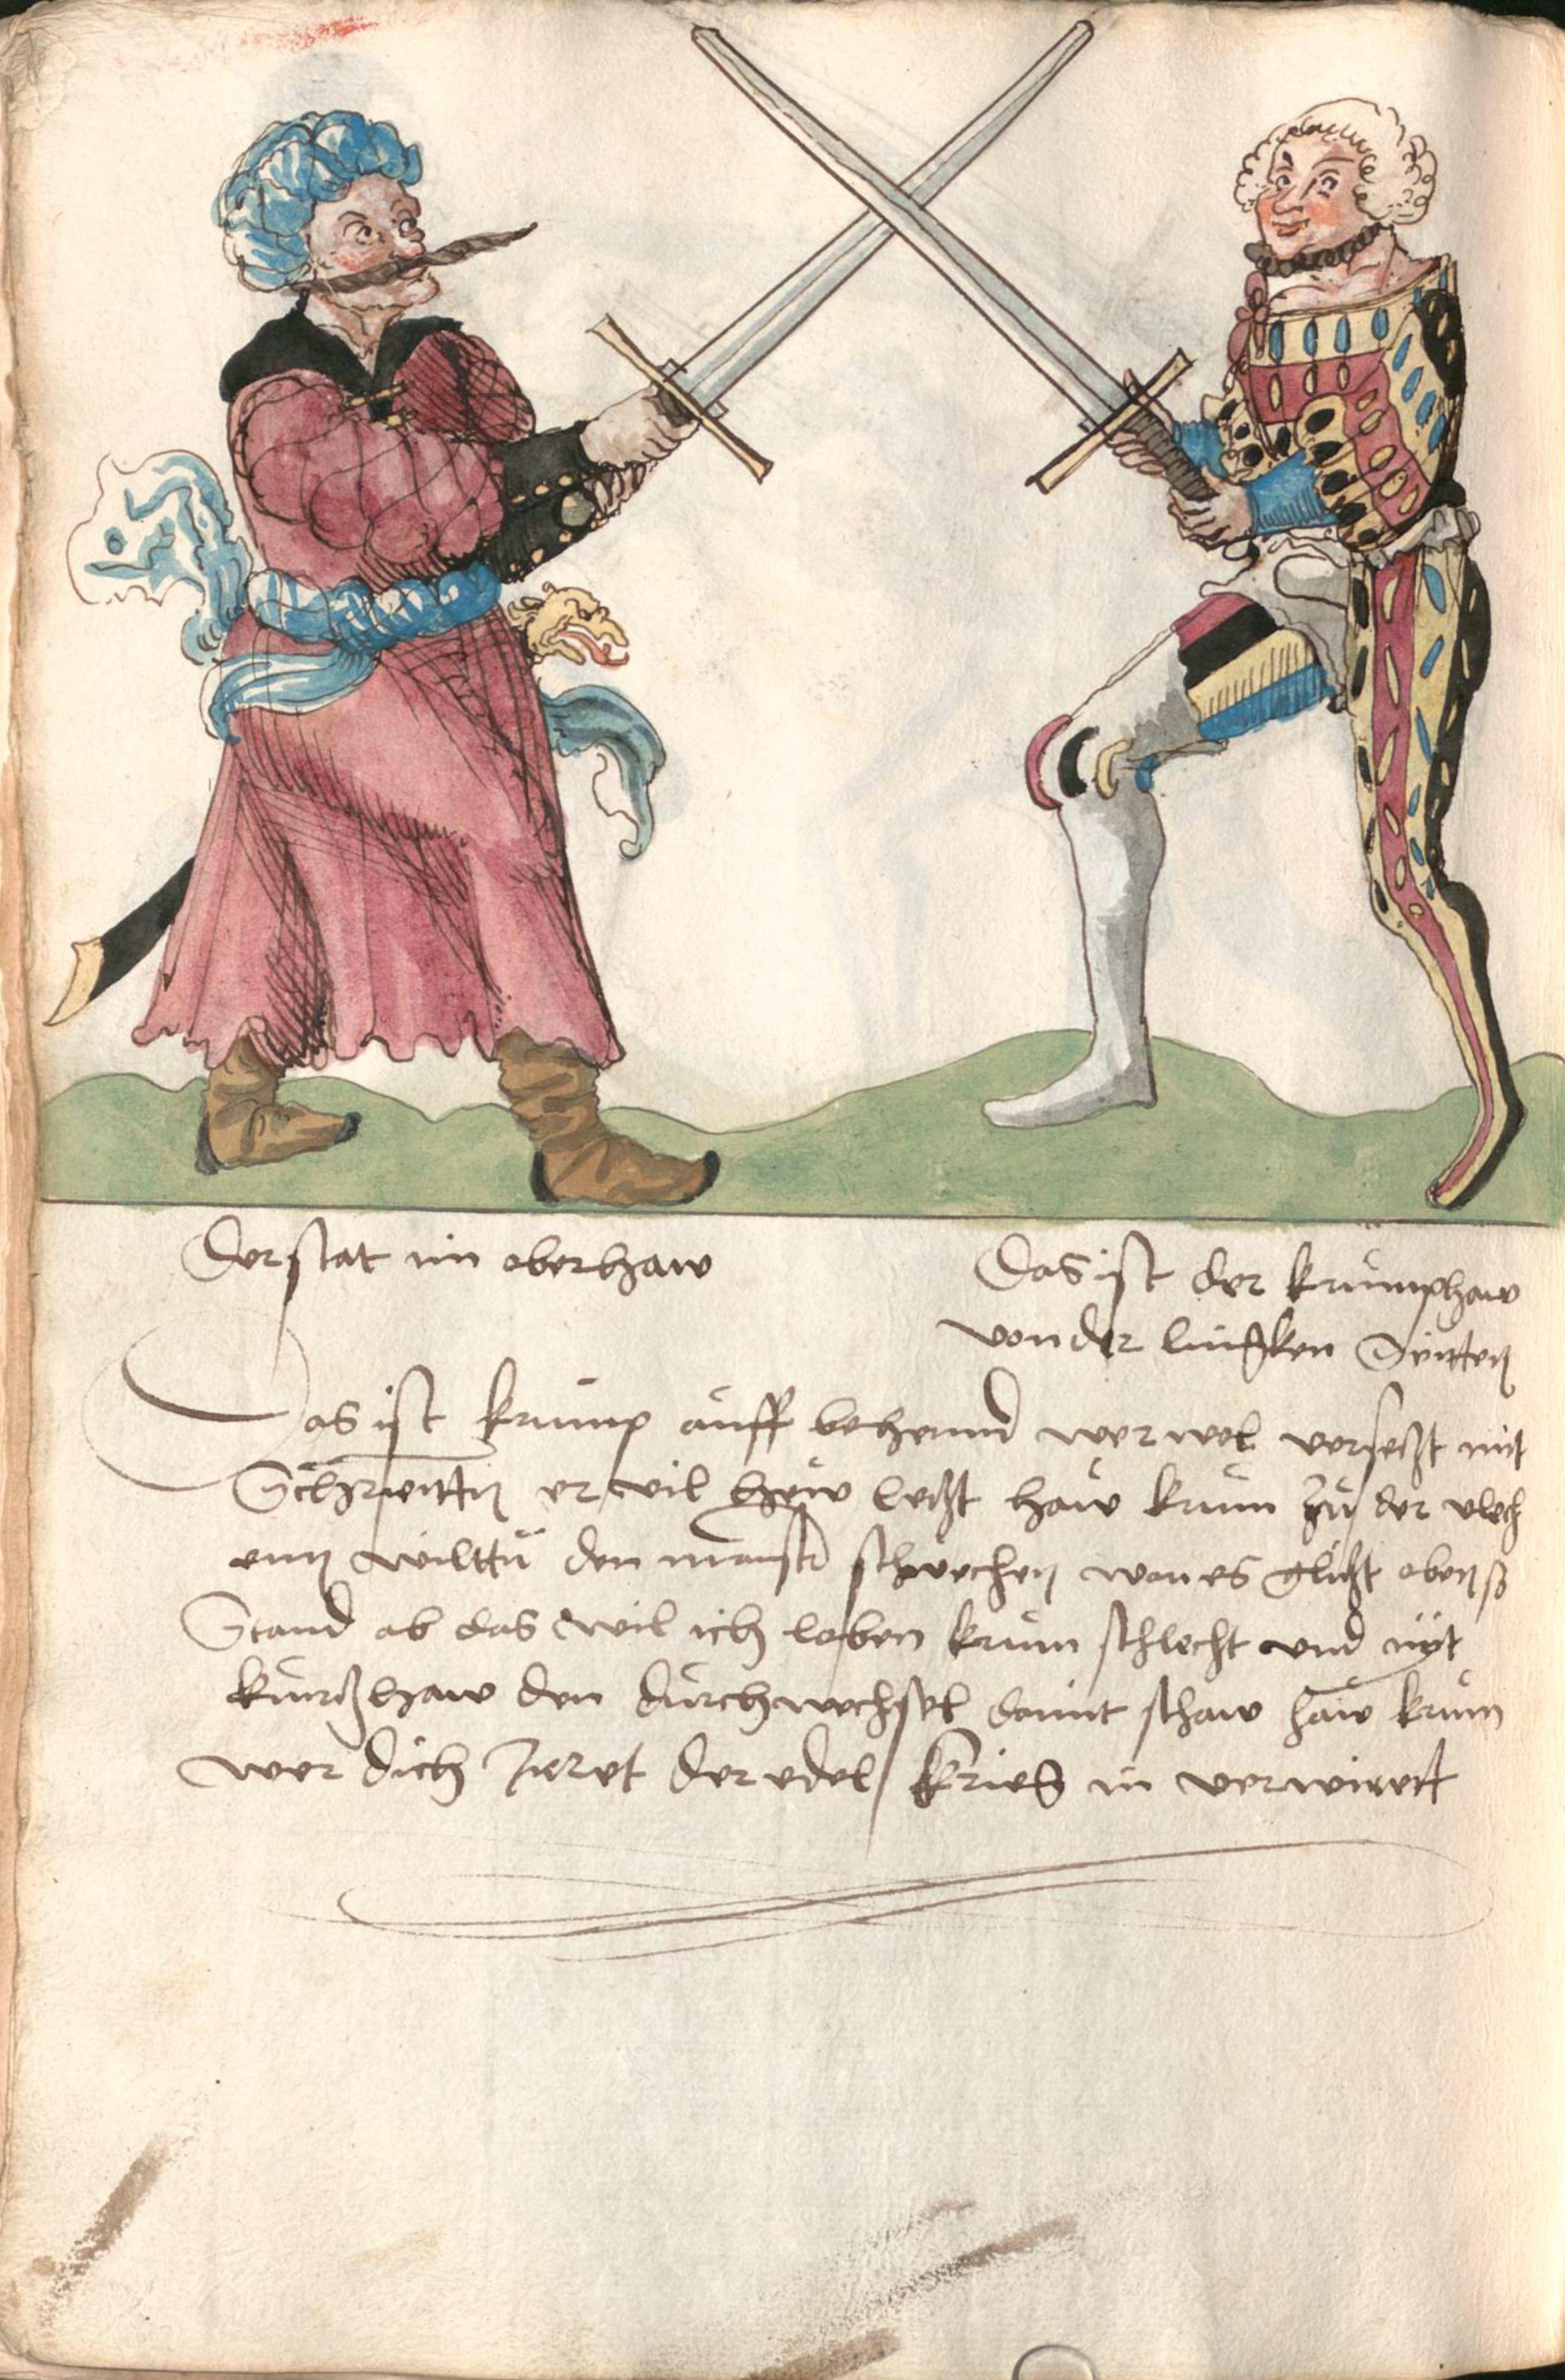 Der stat im oberhaw
Das ist der krumphaw
von der linncken Seitten
Das ist krump auff behennd wer wol verseczt mit
Schreitten er vil hew leczt haw krum zu der vlech
enn wilttu den maister schwechen wan es glitzt oben so
Stand ab das wil ich loben krum schlecht und nit
kurcz haw den durchwechsel damit schaw haw krum
wer dich Irret der edel krieg in verwirret